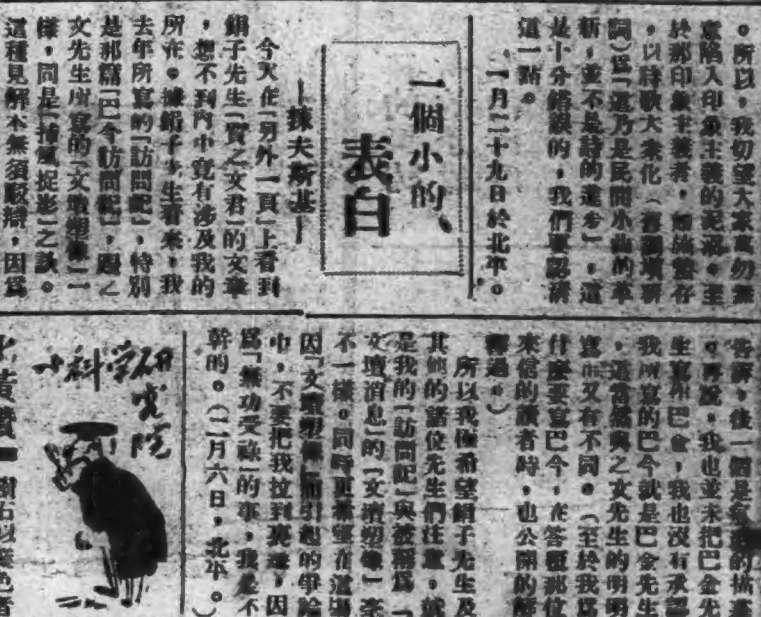 。所以，我切望大家萬勿無
意陷入印象主義的泥沼。至
於那印象主義者，
，以詩歌大衆化（舊調填新
詞）爲「這乃是民間小曲的革
新，並不是詩的進步」，這
是十分錯誤的，我們要認清
這一點。
一月二十九日於北平。
一個小的、
表白
—揀夫斯基—
今天在「另外一頁」上看到
絹子先生「質之文君」的文章
，想不到內中竟有涉及我的
所在。據絹子先生看來，我
去年所寫的「訪問記」，特別
是那篇「巴今訪問記」，跟之
文先生所寫的「文壇塑像」一
樣，同是「捕風捉影」之訣。
這種見解本無須駁辯，因爲
告訴，後一個是
。再說，我也並未把巴金先
生寫作巴金，我也沒有承認
我所寫的巴今就是巴金先生
，這當然與之文先生的明明
寫 又有不同。（至於我爲
什麼要寫巴今，在答覆那位
來信的讀者時，也公開的解
釋過。）
所以我極希望絹子先生及
其他的諸位先生們注意，就
是我的「訪問記」與被稱爲「
文壇消息」的「文壇塑像」毫
不一樣。同時更希望在這場
因「文壇塑像」而引起的爭論
中，不要把我拉到裏邊，因
爲「無功受祿」的事，我是不
幹的。（二月六日，北平。）
小科学研究院